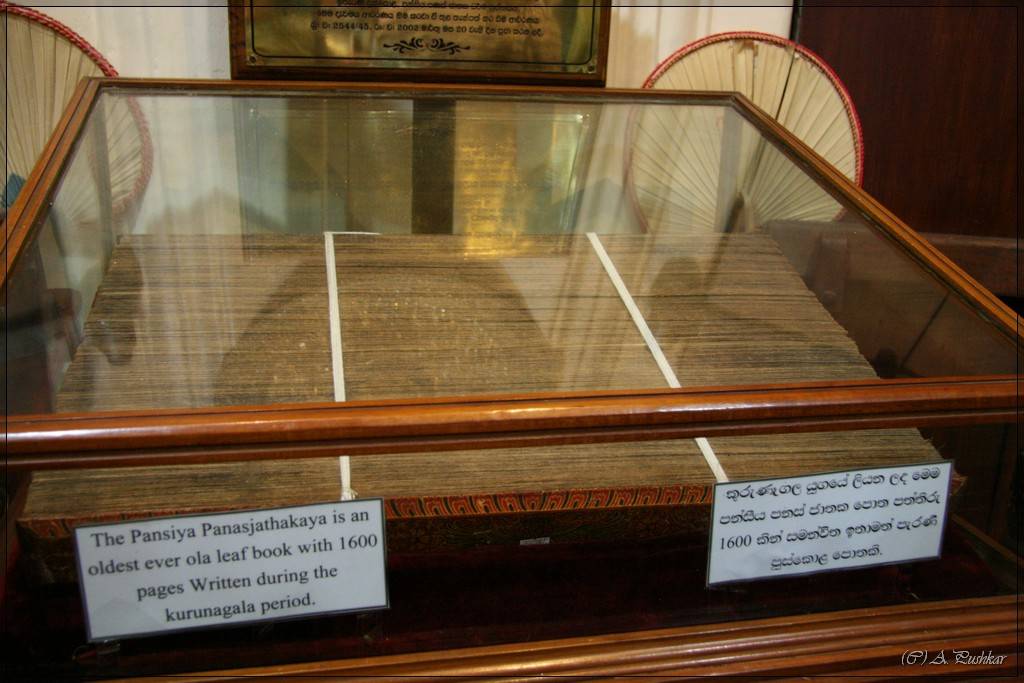 බු: ව: 2544/45. රා: ව: 2002 මාර්තු මස 20 වැනි දින පූජා කරන ලදී.
The Pansiya Panasjathakaya is an
oldest ever ola leaf book with 1600
pages Written during the
kurunagala period.
කුරුණෑගල යුගයේ ලියන ලද මෙම
පන්සීය පනස් ජාතක පොත පත්තිරු
1600 කින් සමන්විත ඉතාමත් පැරණි
පුස්කොළ පොතකි.
(C) A. Pushkar